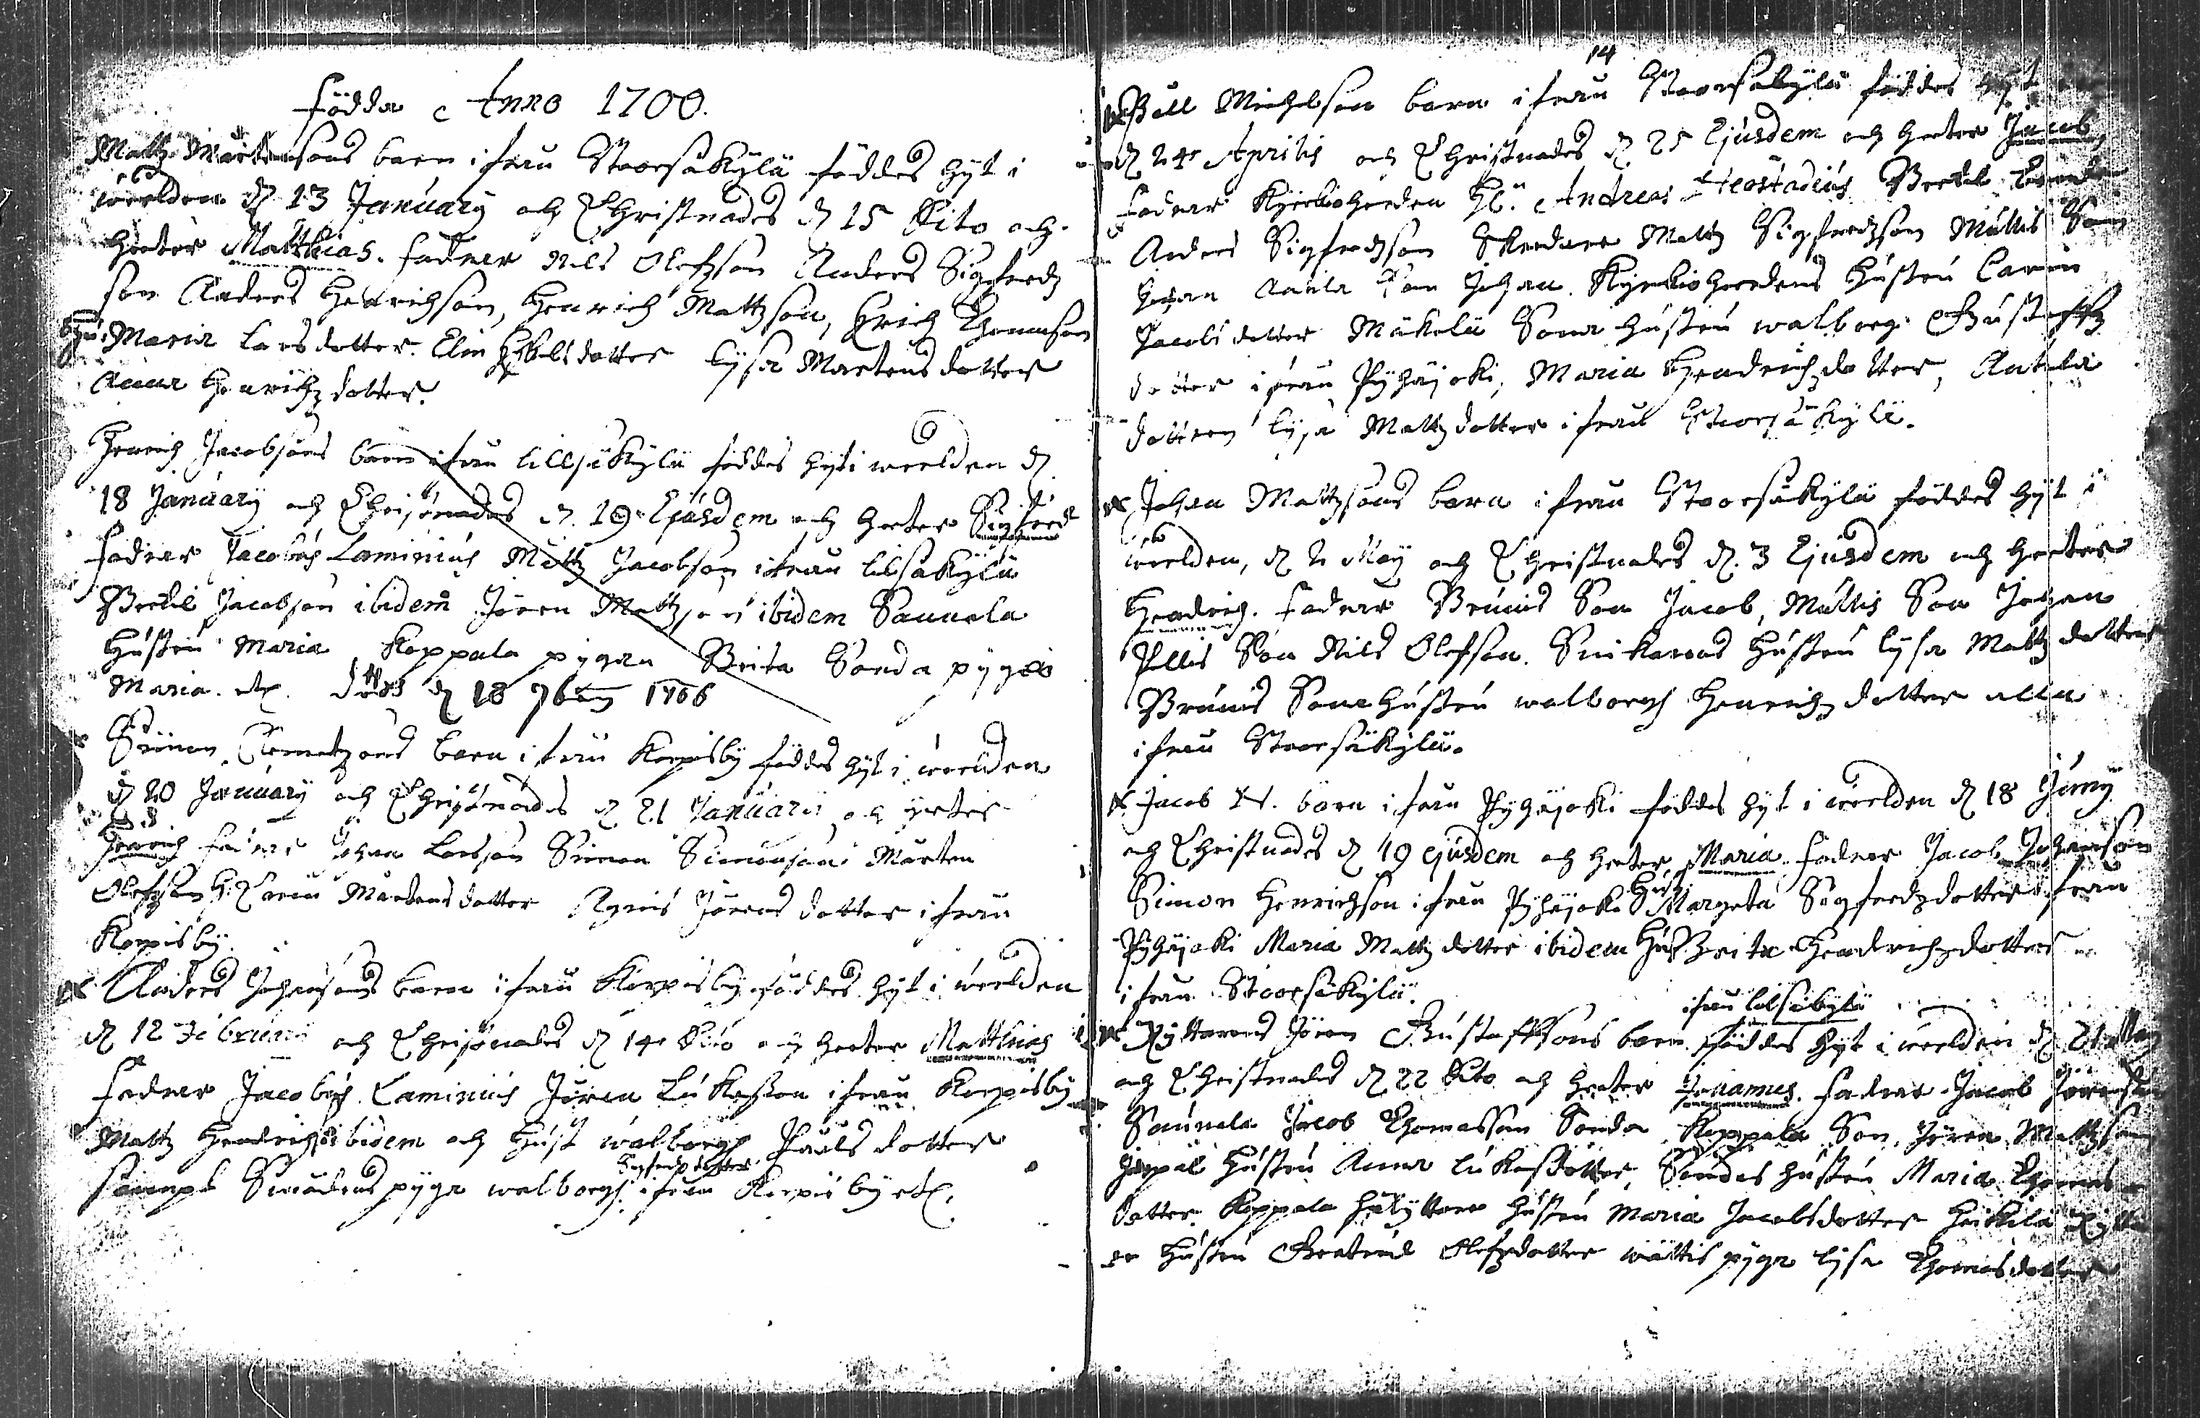 Födda Anno 1700.
Mattz Mårtensons barn ifrån Stoorsäkylä föddes hyt i
werlden d. 13 January och Christnades d 15 Dito och
heeter Matthias. Fadrar Nils Olefzson Anders Sigfredz
son Anders Hendrichson, Henrich Mattzson, Erich Thomasson
Hu: Maria Larsdotter. Elin dotter Lysa Mårtensdotter
Anna Henrichzdotter.
Henrich Jacobsons barn ifrån Lillsäkylä föddes hyt i werlden d.
18 January och Christnades d. 19 Ejusdem och heeter Sigfred
Fadrar Jacobus Laminius Mattz Jacobson ifrån Lilsäkylä
Bertil Jacobson ibidem Jören Mattzson ibidem Sannala
Hustru Maria Koppala pygan Brita Sonda pygas
Maria. etc. döds d 18 7b 1706
Simon barn ifrån Korpisby föddes hyt i werlden
d 20 January och Christnades d 21 January och heeter
Henrich Fadrar Johan Larsson Simon Simonsson Mårten
Olefzson H: Carin Mårtensdotter Agnis Jörensdotter ifrån
Korpisby.
Anders Johansons barn ifrån Korpisby föddes hyt i werlden
d 12 Februari och Christnades d 14 Dito och heeter Matthias
Fadrar Jacobus Laminius Jören Lukasson ifrån Korpisby
Mattz Hendrichz ibidem och Hust walborg Påulsdotter
sampt pyga walborg Sigfredzdotter ifrån Korpisby etc.
14
Påll Michelson barn ifrån Stoorsäkylä föddes hyt
d 24 Aprilis och Christnades d 25 Ejusdem och heeter Jacob
Fadrar Kyrkioherden Hl. Andreas Neostadius Bertil
Anders Sigfredzson Mattz Sigfredzson Multis Son
Johan Anila Son Johan. Kyrkioherdens Hustru Carin
Jacobsdotter Mäkelä Sona hustru walborg Gustaffz
dotter ifrån Pyhäjoki, Maria Hendrichzdotter, Antila
dottren Lysa Mattzdotter ifrån Stoorsäkylä.
Johan Mattzsons barn ifrån Stoorsäkylä föddes hyt i
werlden, d 2 May och Christnades d. 3 Ejusdem och heeter
Hendrich. Fadrar Brunis Son Jacob, Multis Son Johan
Yllis Son Nils Olefson. Hustru Lysa Mattzdotter
Brunis Sona Hustru walborg Henrichzdotter alla
ifrån Stoorsäkylä.
Jacob N. barn ifrån Pyhäjoki föddes hyt i werlden d 18 Juny
och Christnades d 19 ejusdem och heeter Maria. Fadrar Jacob Johanson
Simon Henrichson ifrån Pyhäjoki Hu: Margeta Sigfredzdotter ifrån
Pyhäjoki Maria Mattzdotter ibidem Hust Brita Hendrichzdotter
ifrån Stoorsäkylä.
Ryttarens Jören Gustaffsons barn ifrån Lilsäkylä föddes hyt i werlden d 21
och Christnades d 22 Dito och heeter Johannes. Fadrar Jacob
Sannala Jacob Thomasson Sonda Koppala Son Jören Mattzson
hustru Anna Lukasdotter, Sondas hustru Maria
dotter Koppala hustru Maria Jacobsdotter Heikilä
hustru Olefzdotter wättis pyga Lysa Thomasdotter